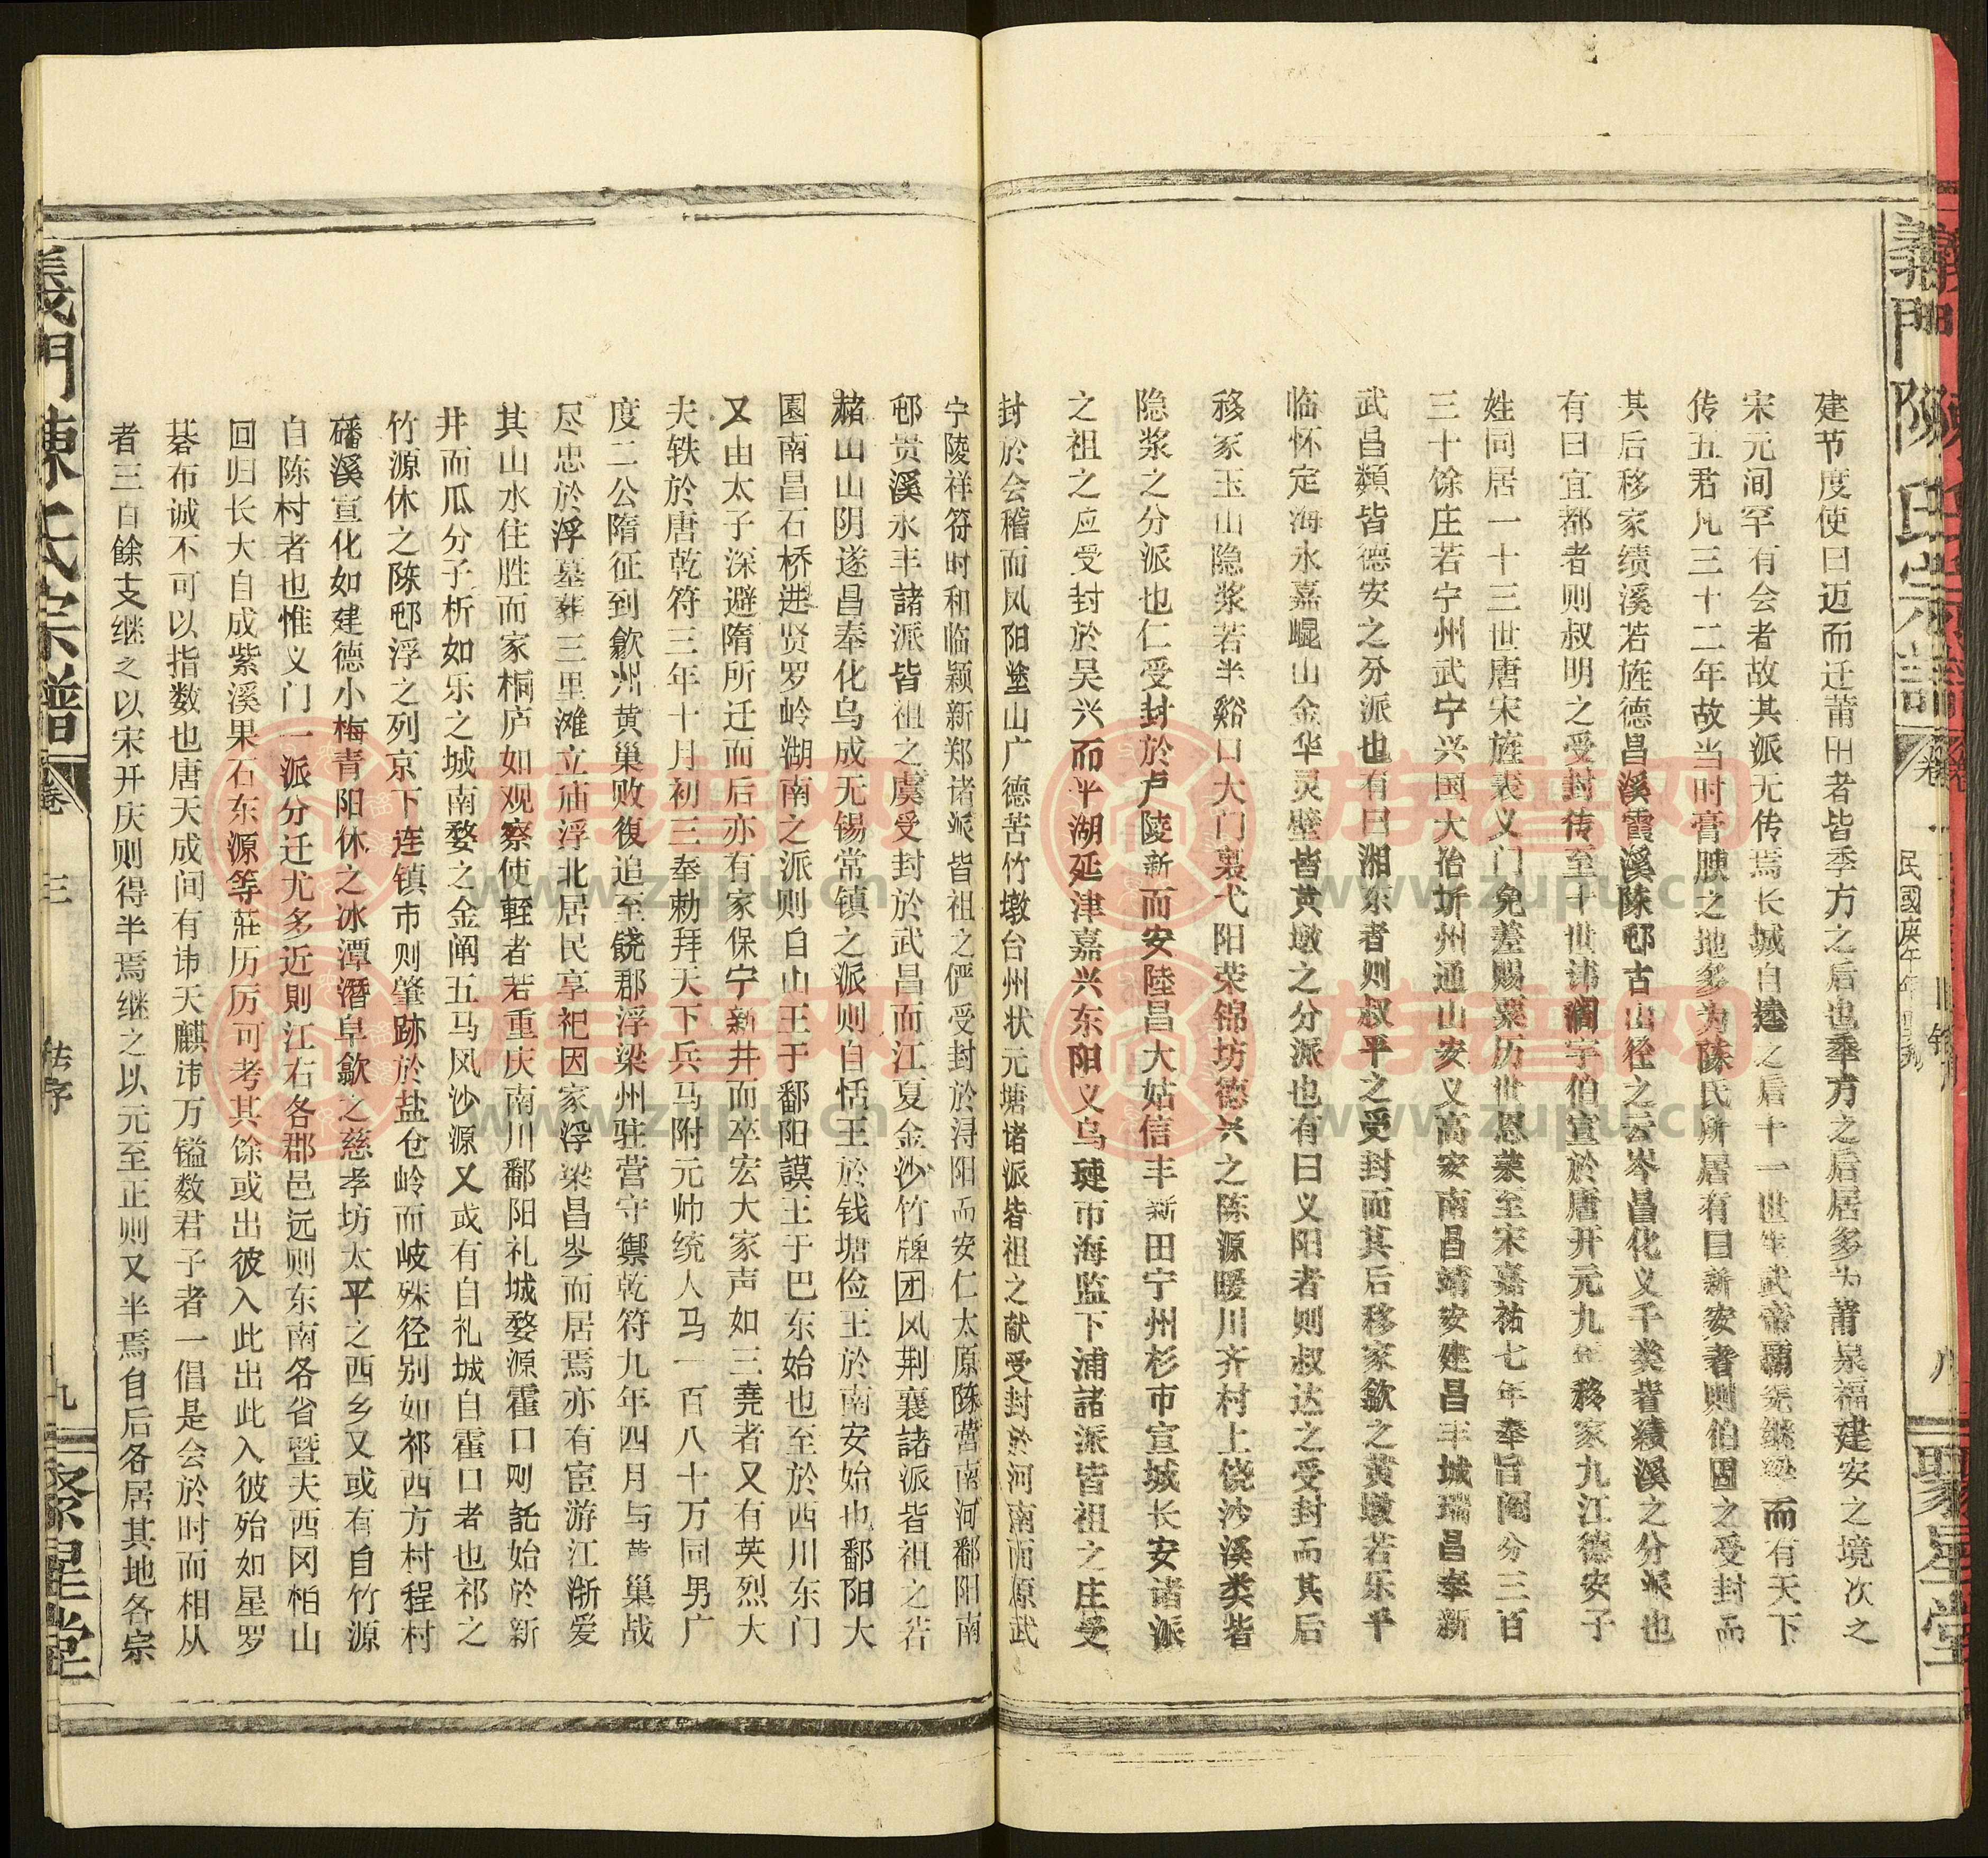 義門陳氏宗譜
卷一
民國庚午年
八
聚星堂
建节度使曰迈而迁莆阳者皆季方之后也季方之后居多为莆泉福建安之境次之
宋元间罕有会者故其派无传焉长城自逵之后十一世生武帝霸先继梁而有天下
传五君凡三十二年故当时膏腴之地多为陈氏所居有曰新安者则伯固之受封而
其后移家绩溪若旌德昌溪霞溪陈邨古山径之云岑昌化义千类皆绩溪之分派也
有曰宜都者则叔明之受封传至十世讳润字伯宣於唐开元九年移家九江德安子
姓同居一十三世唐宋旌表义门免差赐粟历世恩荣至宋嘉祐七年奉旨阄分三百
三十馀庄若宁州武宁兴国大冶圻州通山安义高安南昌靖安建昌丰城瑞昌奉新
武昌類皆德安之分派也有曰湘东者则叔平之受封而其后移家歙之黄墩若乐平
临怀定海永嘉崐山金华灵壁皆黄墩之分派也有曰义阳者则叔达之受封而其后
移家玉山隐浆若半谿口大门裏弋阳荣锦坊德兴之陈源暖川齐村上饶沙溪类皆
隐浆之分派也仁受封於卢陵新而安陸昌大姑信丰新田宁州杉市宣城长安诸派
之祖之应受封於吴兴而平湖延津嘉兴东阳义乌璉市海监下浦諸派皆祖之庄受
封於会稽而凤阳塗山广德苦竹墩台州状元塘诸派皆祖之献受封於河南而原武
宁陵祥符时和临颍新郑诸派皆祖之俨受封於浔阳而安仁太原陈营南河鄱阳南
邨贵溪永丰諸派皆祖之虞受封於武昌而江夏金沙竹牌团风荆襄諸派皆祖之若
赭山山阴遂昌奉化乌成无锡常镇之派则自恬王於钱塘俭王於南安始也鄱阳大
園南昌石桥进贤罗岭湖南之派则自山王于鄱阳謨王于巴东始也至於西川东门
又由太子深避隋所迁而后亦有家保宁新井而卒宏大家声如三堯者又有英烈大
夫轶於唐乾符三年十月初三奉勅拜天下兵马附元帅统人马一百八十万同男广
度二公隋征到歙州黄巢败復追至饒郡浮梁州驻营守禦乾符九年四月与黄巢战
尽忠於浮墓葬三里滩立庙浮北居民享祀因家浮梁昌岑而居焉亦有宦游江浙爱
其山水住胜而家桐庐如观察使輊者若重庆南川鄱阳礼城婺源霍口则託始於新
井而瓜分子析如乐之城南婺之金阐五马风沙源又或有自礼城自霍口者也祁之
竹源休之陈邨浮之列京下连镇市则肇跡於盐仓岭而岐殊径别如祁西方村程村
磻溪宣化如建德小梅青阳休之冰潭潛阜歙之慈孝坊太平之西乡又或有自竹源
白陈村者也惟义门一派分迁尤多近則江右各郡邑远则东南各省暨夫西冈柏山
回归长大自成紫溪果石东源等莊历历可考其馀或出彼入此出此入彼殆如星罗
碁布诚不可以指数也唐天成间有讳天麒讳万镒数君子者一倡是会於时而相从
者三百餘支继之以宋开庆则得半焉继之以元至正则又半焉自后各居其地各宗
義門陳氏宗譜
卷
三
九
聚星堂
族谱网
www.zupu.cn
族谱网
www.zupu.cn
族谱网
www.zupu.cn
族谱网
www.zupu.cn